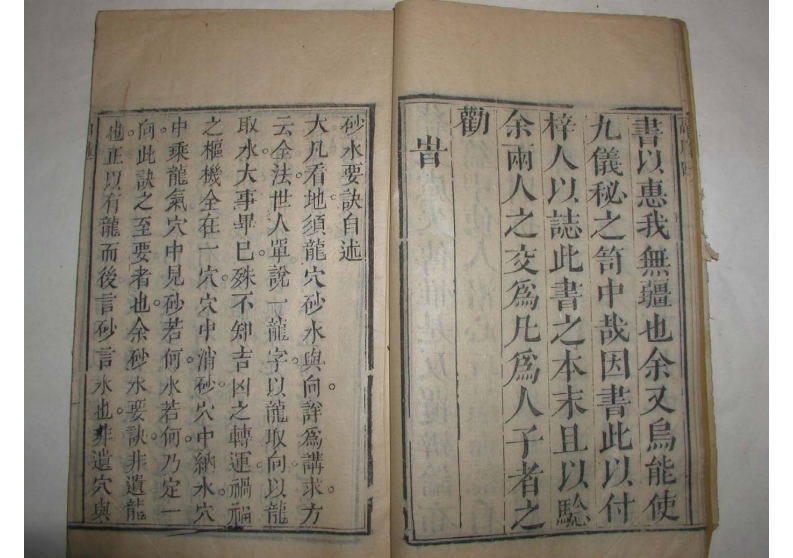 書以惠我無疆也余又烏能使
九儀秘之笥中哉因書此以付
梓人以誌此書之本末且以騐
余兩人之交為凡為人子者之
勸
旹
砂水要訣自述
大凡看地須龍穴砂水與向詳為講求方
云全法世人單說一龍字以龍取向以龍
取水大事畢巳殊不知吉凶之轉運禍福
之樞機全在一穴穴中消砂穴中納水穴
中乘龍氣穴中見砂若何水若何乃定一
向此訣之至要者也余砂水要訣非遺龍
也正以有龍而後言砂言水也非遺穴與